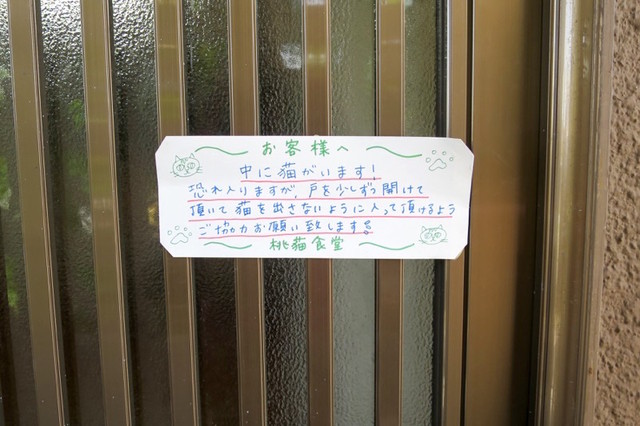 お客様へ
中に猫がいます!
恐れ入りますが、戸を少しずつ開けて
頂いて猫を出さないように入って頂けるよう
ご協力お願い致します。
桃猫食堂